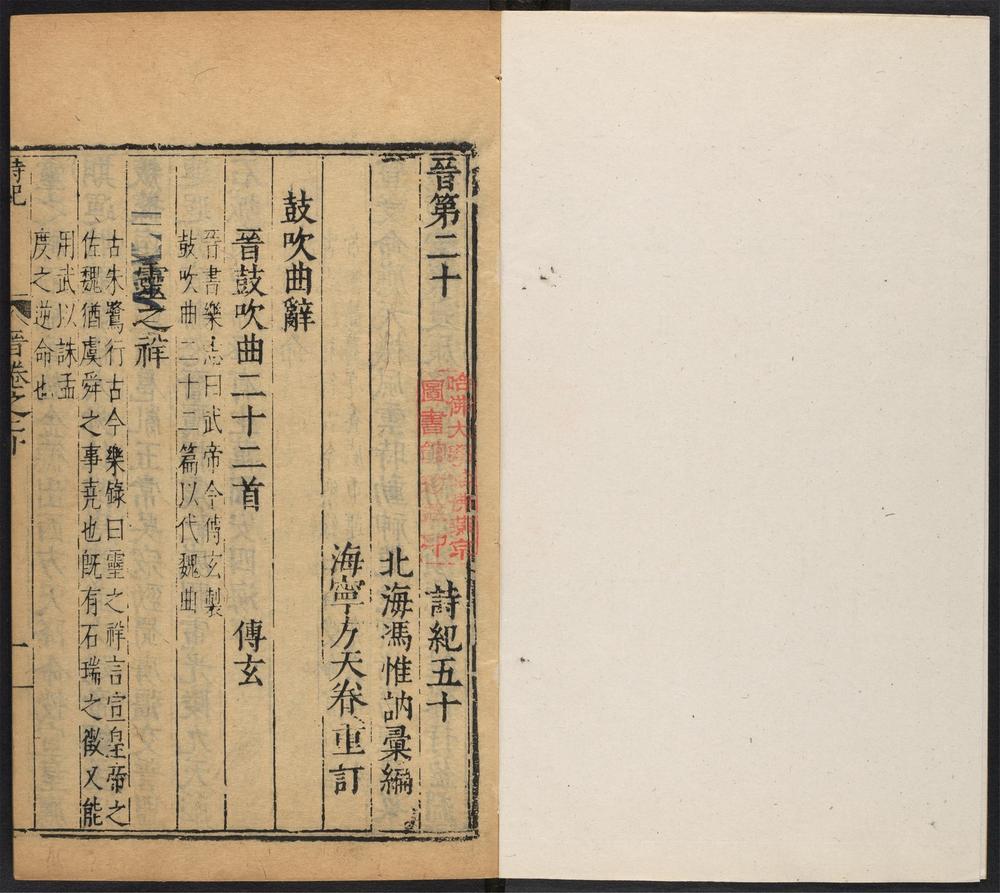 晉第二十 詩紀五十
哈佛大學哈佛燕京
圖書館珍藏印
北海馮惟訥彙編
海寧方天眷重訂
鼓吹曲辭
晉鼓吹曲二十二首 傅玄
晉書樂志曰武帝令傅玄製
鼓吹曲二十二篇以代魏曲
靈之祥
古朱鷺行古今樂錄曰靈之祥言宣皇帝之
佐魏猶虞舜之事堯也既有石瑞之徵又能
用武以誅孟
度之逆命也
詩紀 晉卷之二十 一